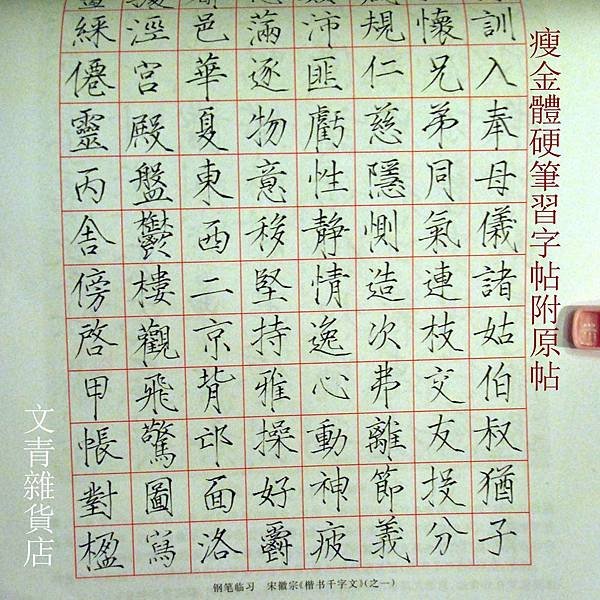 瘦金體硬筆習字帖附原帖
訓入奉母儀諸姑伯叔猶子
懷兄弟同氣連枝交友投分
規仁慈隱惻造次弗離節義
沛匪虧性静情逸心動神疲
滿逐物意移堅持雅操好爵
邑華夏東西二京背邙面洛
涇宮殿盤鬱樓觀飛驚圖寫
綵僊靈丙舍傍啓甲帳對楹
文青雜貨店
钢笔临习 宋徽宗《楷书千字文》(之一)